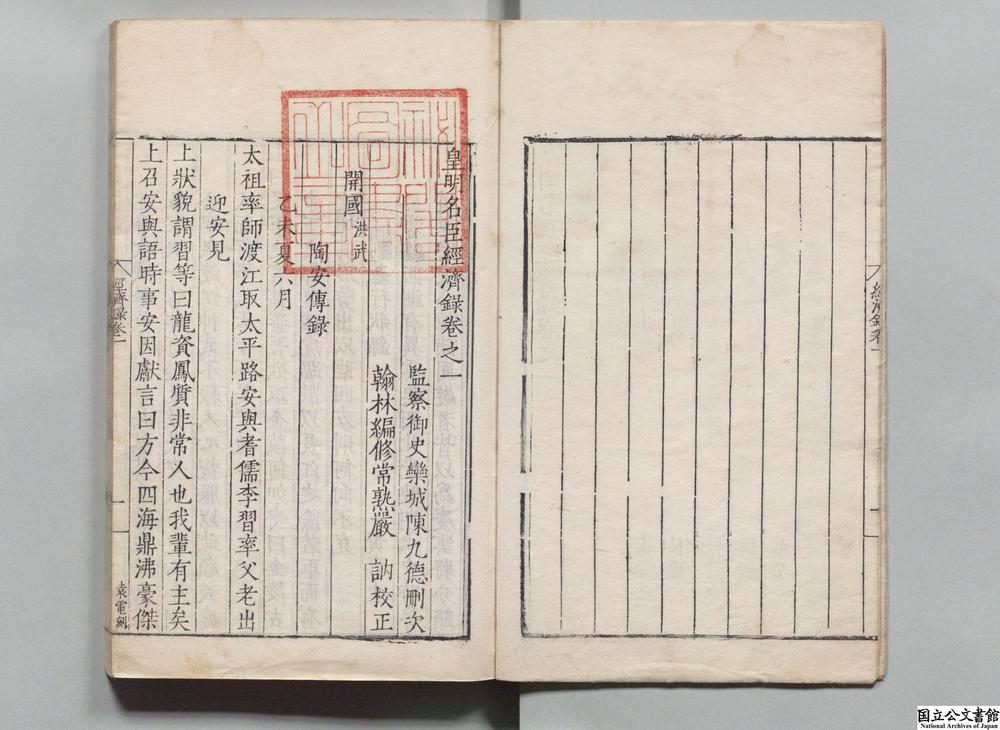 皇明名臣經濟錄卷之一
監察御史欒城陳九德刪次
翰林編修常熟嚴 訥校正
開國洪武
陶安傳錄
乙未夏六月
太祖率師渡江取太平路安與耆儒李習率父老出
迎安見
上狀貌謂習等曰龍資鳳質非常人也我輩有主矣
上召安與語時事安因獻言曰方今四海鼎沸豪傑
經濟錄卷一
一
袁電刻
經濟錄卷一
国立公文書館
National Archives of Japan